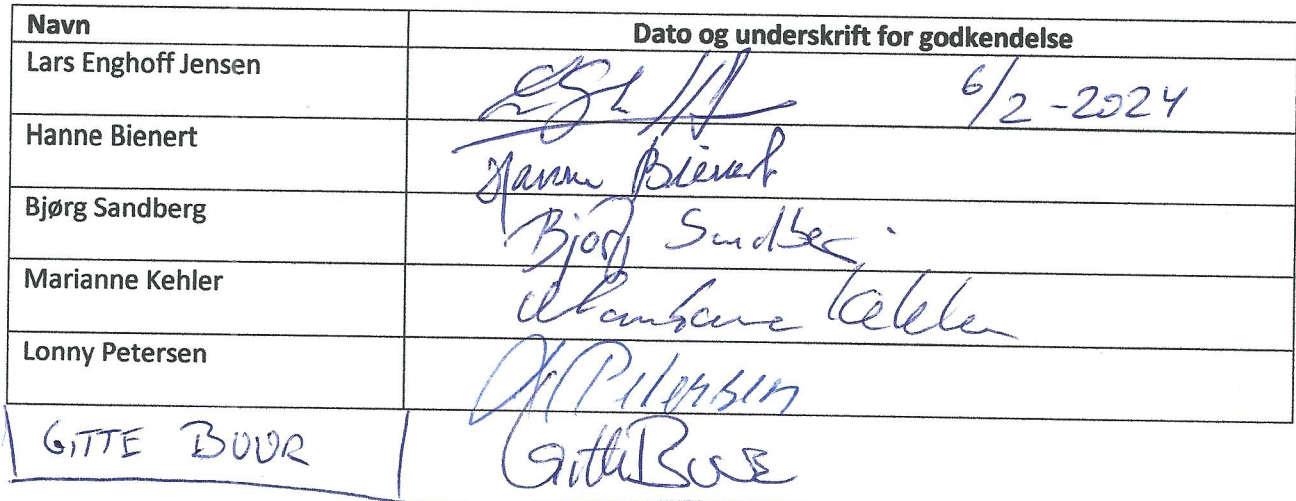 Navn Dato og underskrift for godkendelse
Lars Enghoff Jensen 6/2-2024
Hanne Bienert Hanne Bienert
Bjørg Sandberg Bjørg Sandberg
Marianne Kehler Marianne Kehler
Lonny Petersen Petersen
GITTE BUUR Gitte Buur